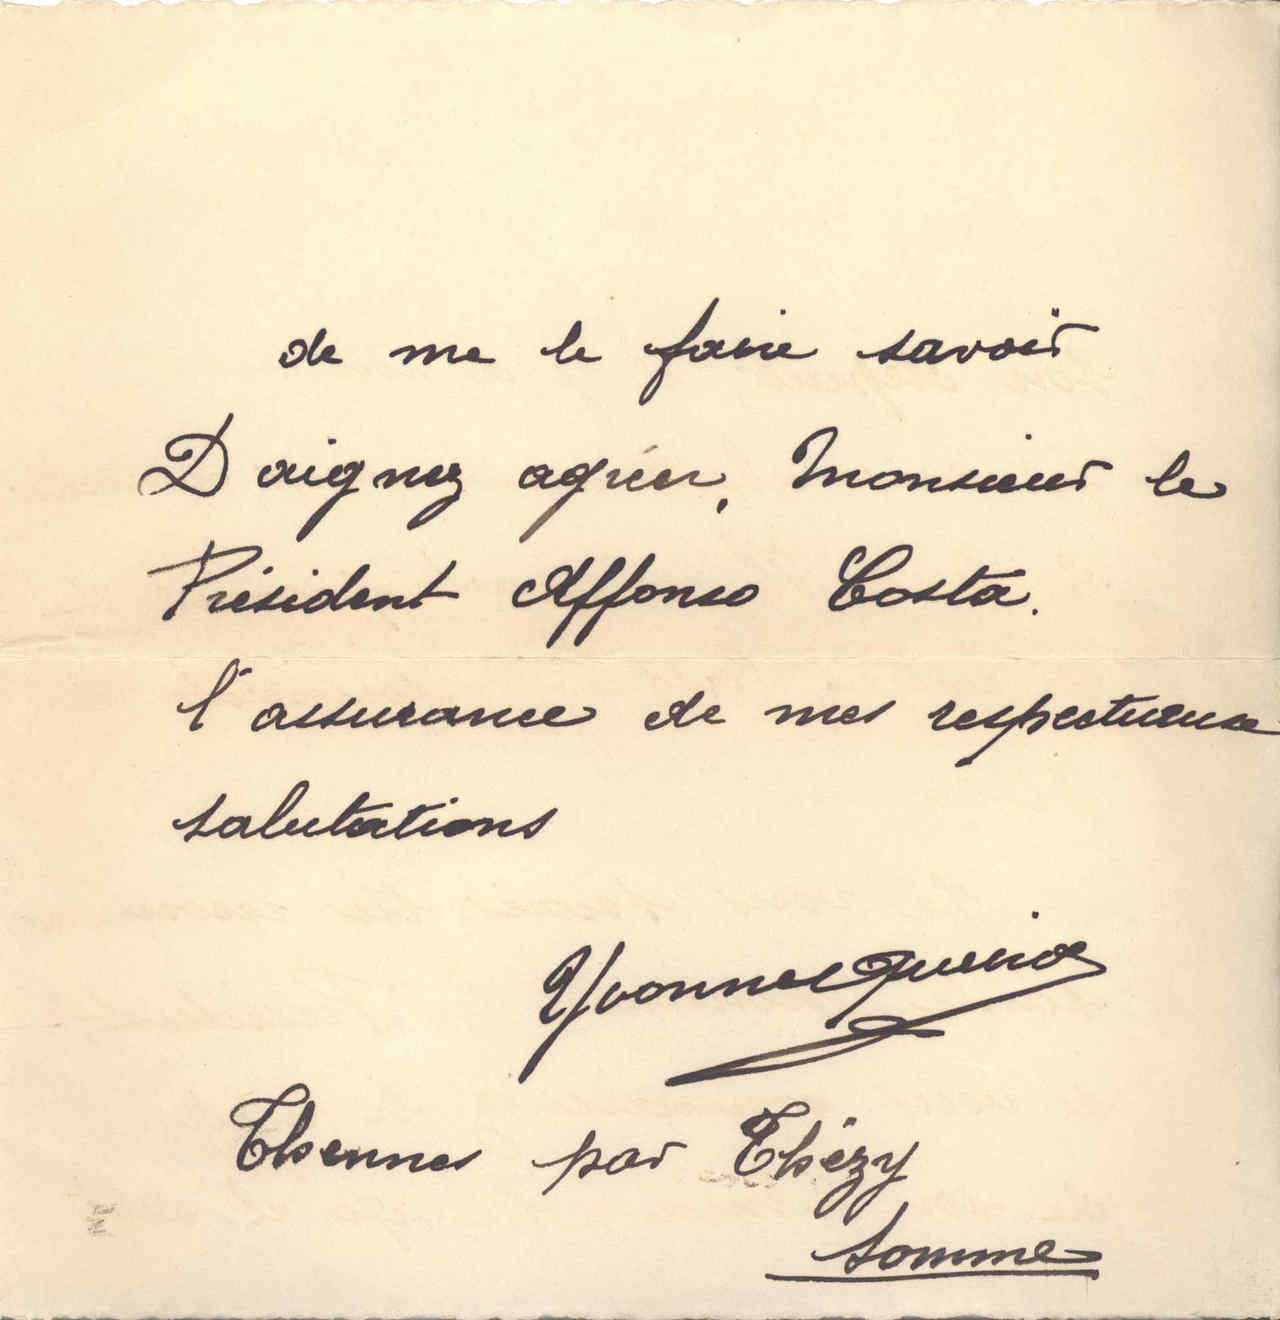 de me le faire savoir
Daignez agréer, Monsieur le
Président Affonso Costa.
l'assurance de mes respectueuse
salutations
Yvonne
Thennes par Thézy
Somme